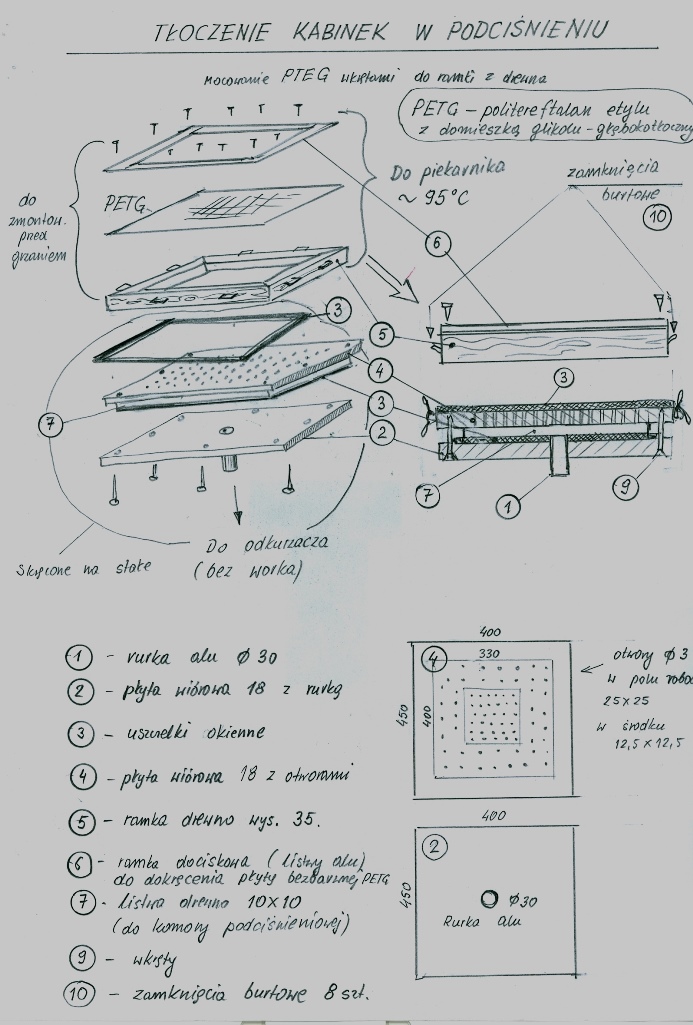 TŁOCZENIE KABINEK W PODCIŚNIENIU
mocowanie PTEG wkrętami do ramki z drewna
PETG - politereftalan etylu
z domieszką glikolu - głębokotłoczny
do
zmontow.
pred
grzaniem
PETG
Do piekarnika
~ 95°C
zamknięcia
burtowe
10
6
3
5
4
3
2
7
3
7
1
9
Skręcone na stałe
Do odkurzacza
(bez worka)
1 - rurka alu Ø 30
2 - płyta wiórowa 18 z rurką
3 - uszczelki okienne
4 - płyta wiórowa 18 z otworami
5 - ramka drewno wys. 35.
6 - ramka dociskowa (listwy alu)
do dokręcenia płyty bezbarwnej PETG
7 - listwa drewno 10x10
(do komory podciśnieniowej)
9 - wkręty
10 - zamknięcia burtowe 8 szt.
400
4
330
450
400
otwory Ø 3
w polu
25x25
w środku
12,5 x 12,5
400
2
450
Ø30
Rurka alu